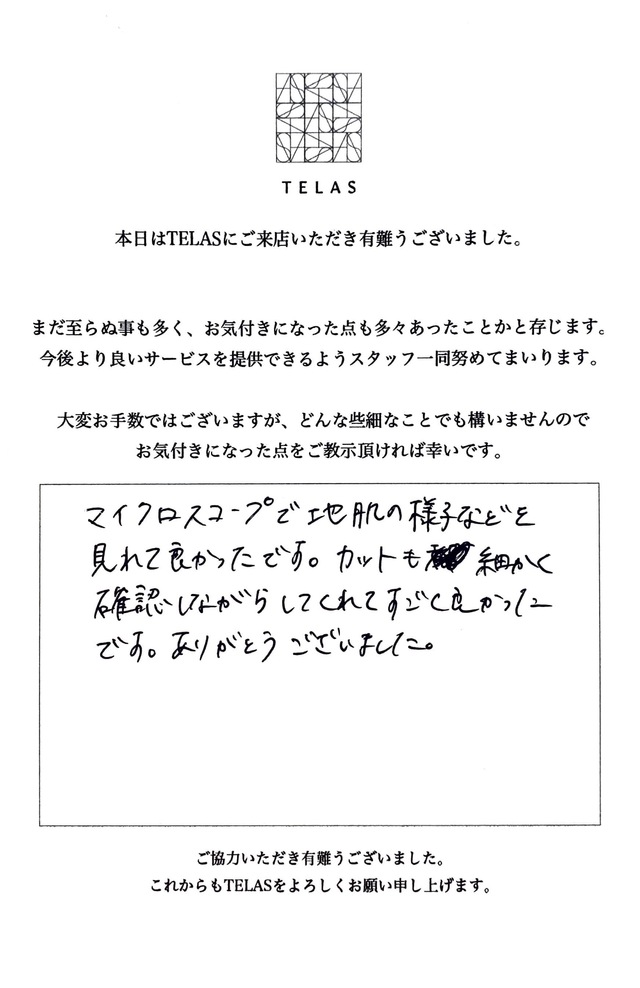 TELAS
本日はTELASにご来店いただき有難うございました。
まだ至らぬ事も多く、お気付きになった点も多々あったことかと存じます。
今後より良いサービスを提供できるようスタッフ一同努めてまいります。
大変お手数ではございますが、どんな些細なことでも構いませんので
お気付きになった点をご教示頂ければ幸いです。
マイクロスコープで地肌の様子などを
見れて良かったです。カットも細かく
確認しながらしてくれてすごく良かった
です。ありがとうございました。
ご協力いただき有難うございました。
これからもTELASをよろしくお願い申し上げます。